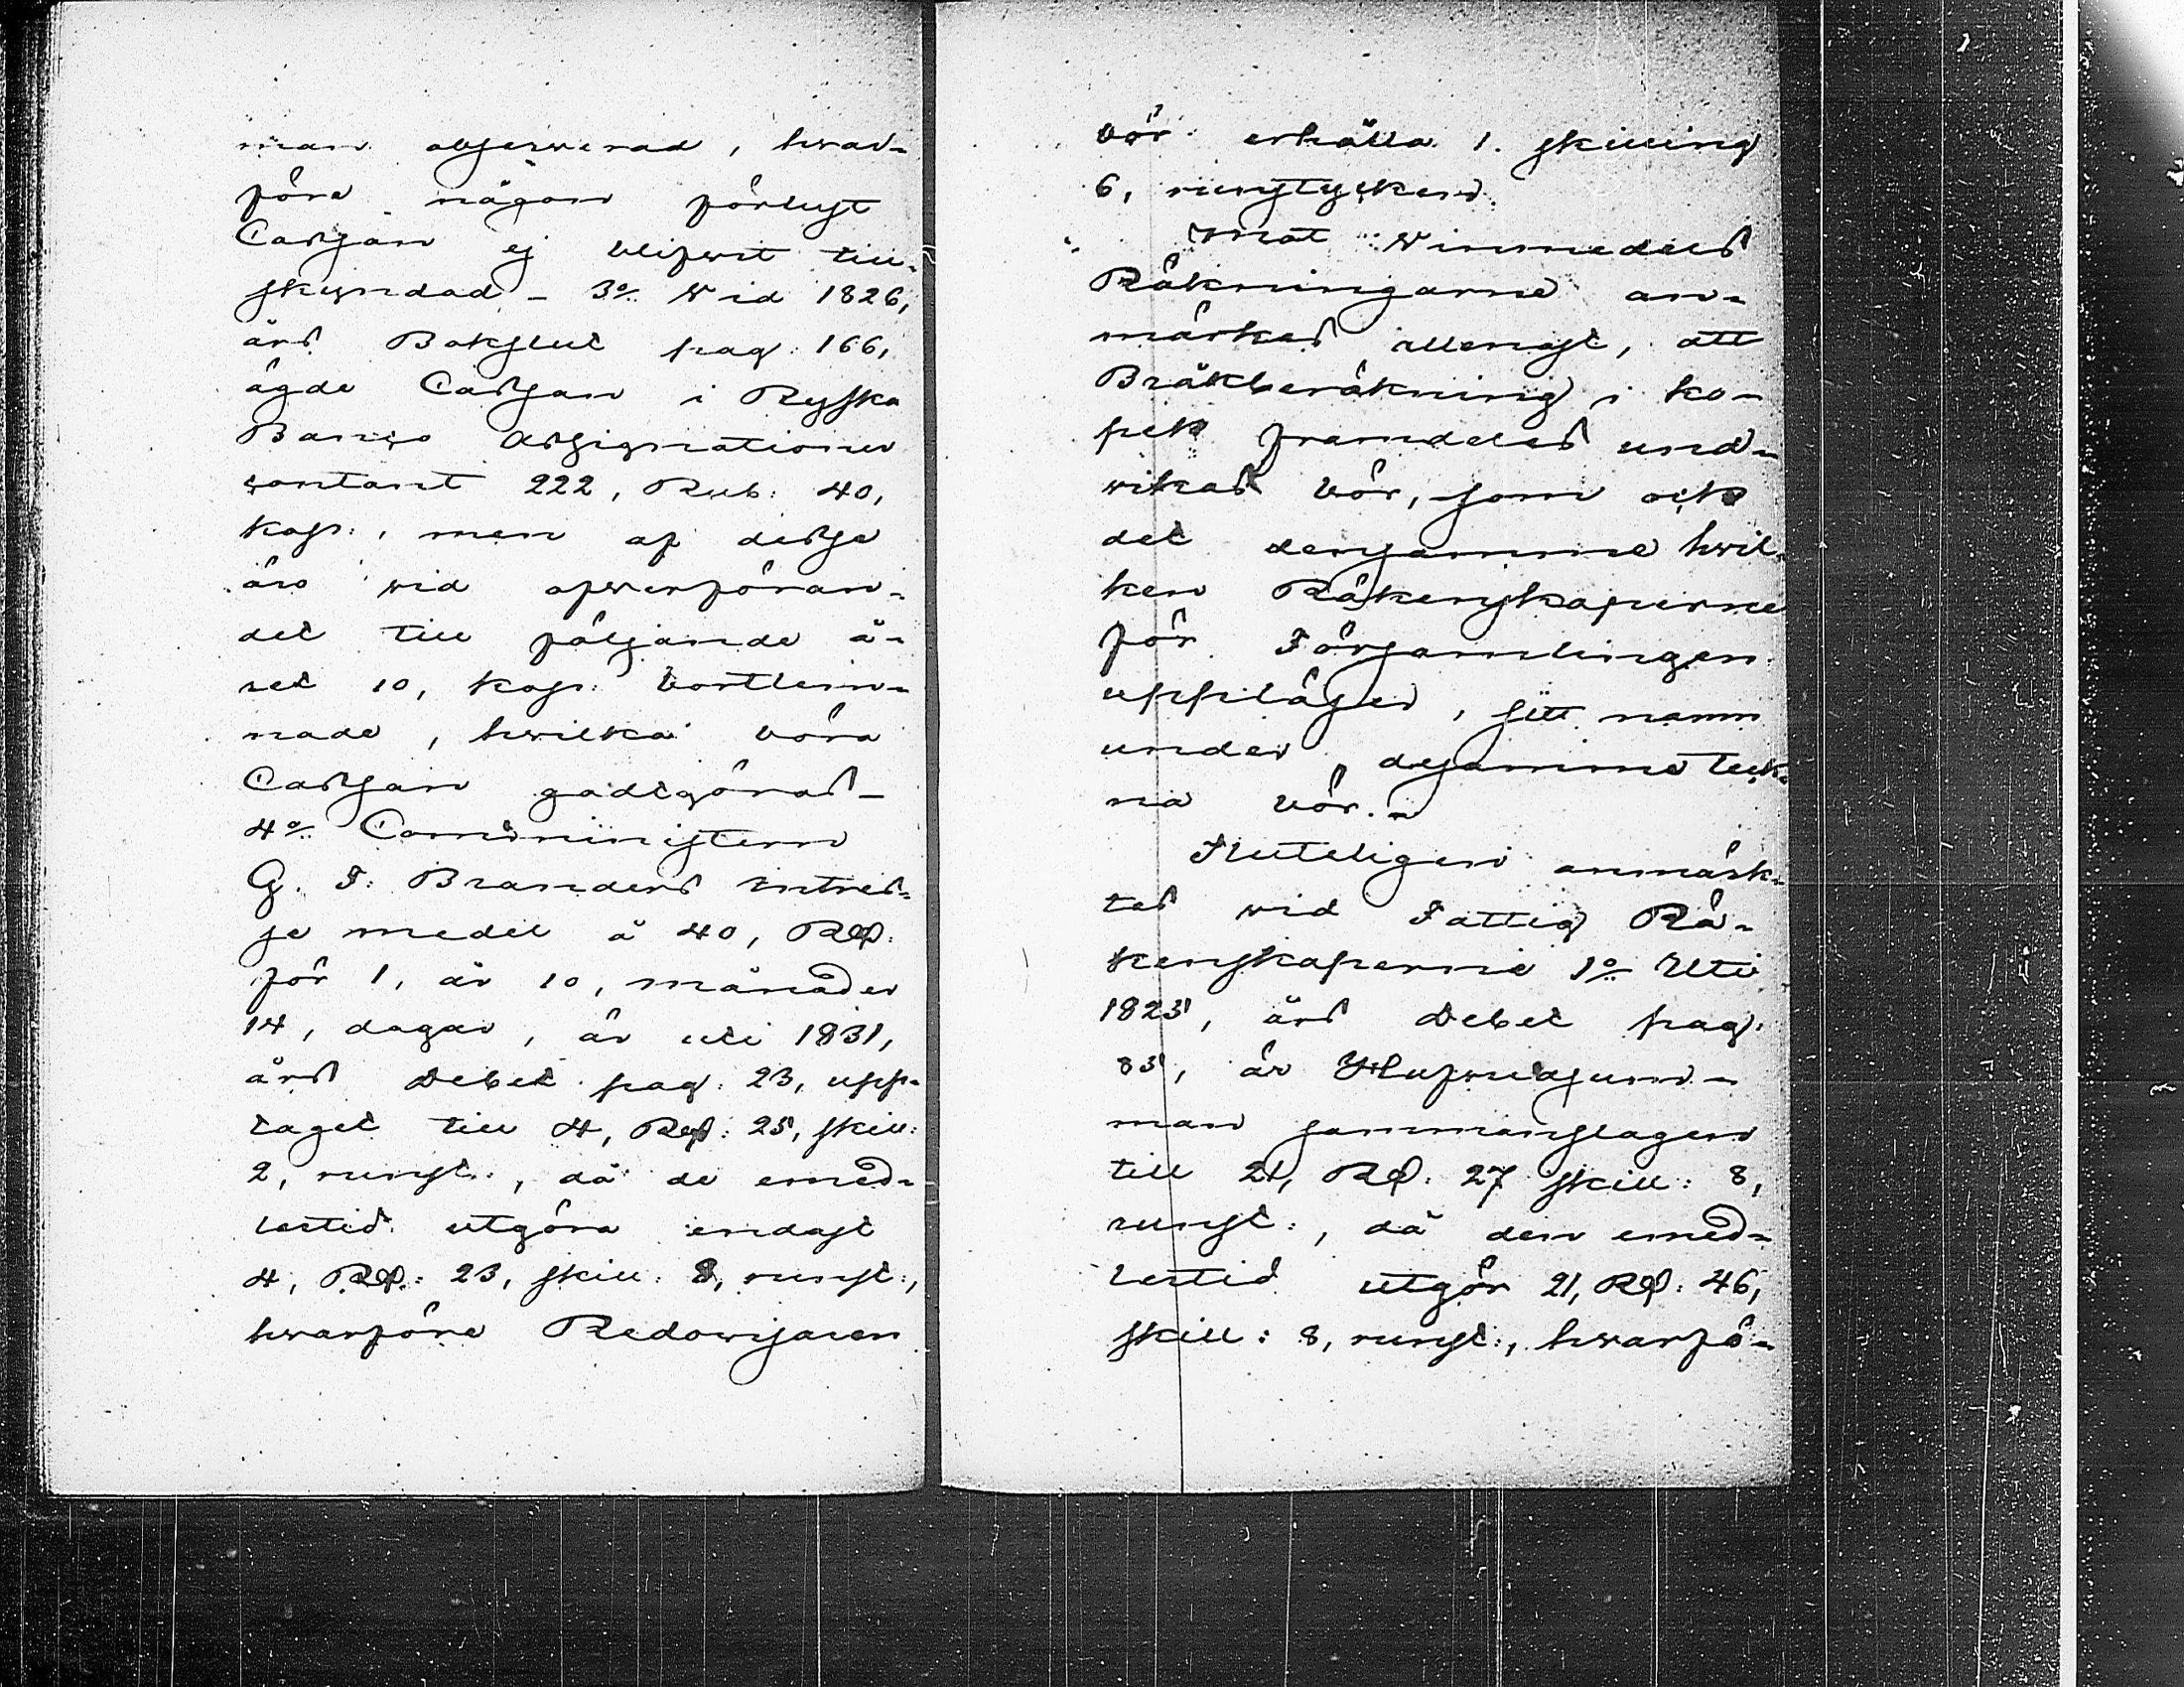 man observerad, hvar-
före någon förlust
Cassan ej blifvit till-
skyndad - 3o Vid 1826,
års Bokslut pag: 166,
ägde Cassan i Ryska
Banco Assignationer
contant 222, Rub: 40,
kop:, men af desse
äro vid öfverföran-
det till följande å-
ret 10, kop: bortlem-
nade, hvilka böra
Cassan godtgöras -
4o Comministern
G. F: Branders Intres-
se medel å 40, Rd:
för 1, år 10, månader
14, dagar, är uti 1831,
års Debet pag: 23, upp-
taget till 4, Rd: 25, skill:
2, runst:, då de emed-
lertid utgöra endast
4, Rd: 23, skill: 8, runst:,
hvarföre Redovisaren
bör erhålla 1. skilling
6, runstycken.
Mot Vinmedels
Räkningarne an-
märkes allenast, att
Bråkberäkning i ko-
pek framdeles und-
vikas bör, som ock
det densamme hvil-
ken Räkenskaperne
för Församlingen
uppläser, sitt namn
under desamme teck-
na bör. -
Sluteligen anmärk-
tes vid Fattig Rä-
kenskaperne 1o Uti
1825, års Debet pag:
85, är Hufvudsum-
man sammanslagen
till 21, Rd: 27 skill: 8,
runst:, då den emed-
lertid utgör 21, Rd: 46,
skill: 8, runst:, hvarfö-